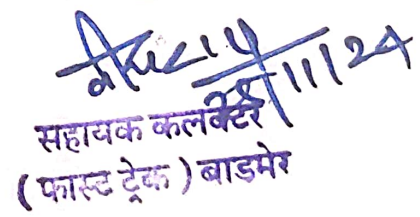 28/11/24
सहायक कलक्टर
( फास्ट ट्रेक ) बाडमेर